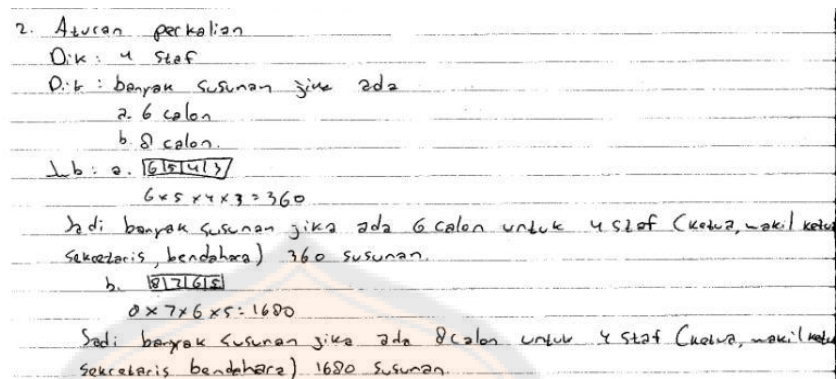 2. Aturan perkalian
Dik: 4 Staf
Dit: banyak susunan jika ada
a. 6 calon
b. 8 calon.
Jwb: a. |6|5|4|3|
6 x 5 x 4 x 3 = 360
Jadi banyak susunan jika ada 6 calon untuk 4 staf (ketua, wakil ketua
sekretaris, bendahara) 360 susunan.
b. |8|7|6|5|
8 x 7 x 6 x 5 = 1680
Jadi banyak susunan jika ada 8 calon untuk 4 staf (ketua, wakil ketua
sekretaris bendahara) 1680 susunan.